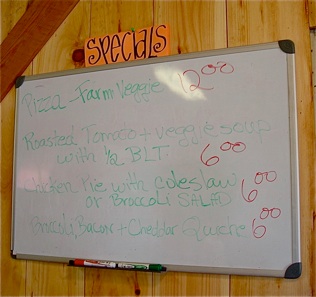 SPECIALS
Pizza - Farm Veggie 12.00
Roasted Tomato + veggie soup
with 1/2 BLT. 6.00
Chicken Pie with coleslaw 6.00
or Broccoli SALAD
Broccoli, Bacon + Cheddar Quiche 6.00